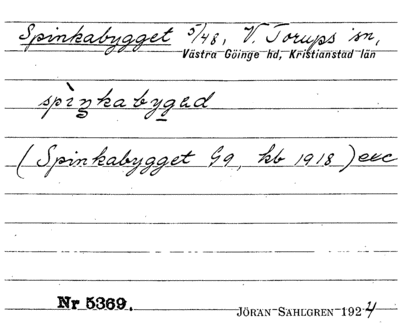 Spinkabygget 5/48, V. Torups sn,
Västra Göinge hd, Kristianstad län
spìnkabygəd
(Spinkabygget G9, kb 1918) exc
Nr 5369.
JÖRAN SAHLGREN 1924